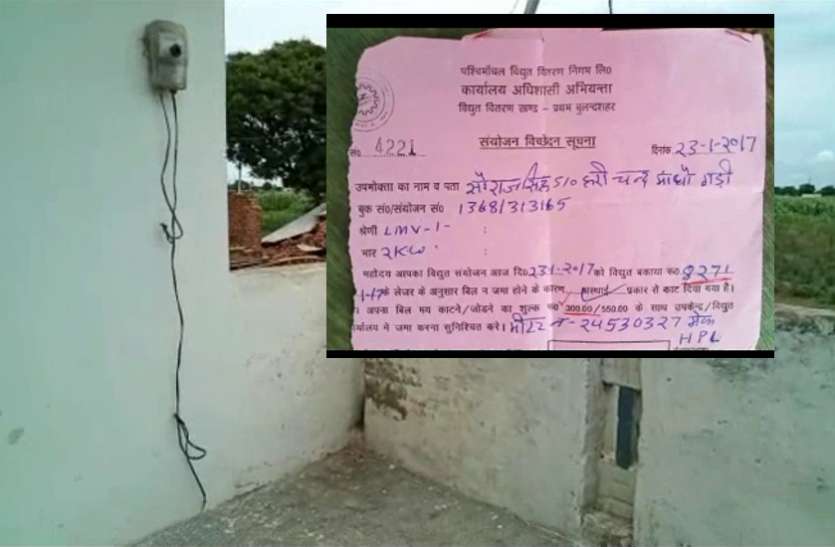 पश्चिमांचल विद्युत वितरण निगम लि०
कार्यालय अधिशासी अभियन्ता
विद्युत वितरण खण्ड – प्रथम बुलन्दशहर
संयोजन विच्छेदन सूचना
सं० 4221 दिनांक 23-1-2017
उपभोक्ता का नाम व पता सौराज सिंह S/o हरी चन्द माधौ गढ़ी
बुक सं०/संयोजन सं० 1368/313165
श्रेणी LMV-1- :
भार 2KW :
महोदय आपका विद्युत संयोजन आज दि० 23-1-2017 को विद्युत बकाया रू० 8271
1-17 के लेजर के अनुसार बिल न जमा होने के कारण अस्थाई प्रकार से काट दिया गया है।
अपना बिल मय काटने/जोडने का शुल्क रू० 300.00/550.00 के साथ उपकेन्द्र/विद्युत
र्यालय में जमा करना सुनिश्चित करे। मीटर न-24530327 मेक
HPL